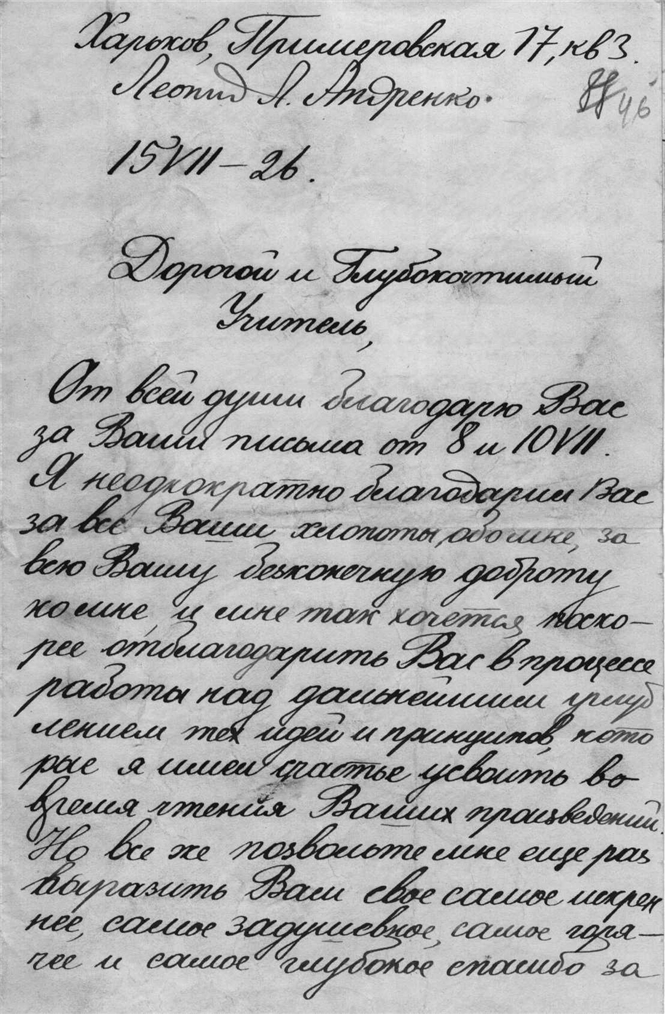 Харьков, Примеровская 17, кв 3.
Леонид Л. Андренко.
46
15 VII — 26.
Дорогой и Глубокочтимый
Учитель,
От всей души благодарю Вас
за Ваши письма от 8 и 10 VII.
Я неоднократно благодарил Вас
за все Ваши хлопоты, обо мне, за
всю Вашу безконечную доброту
ко мне, и мне так хочется поско-
рее отблагодарить Вас в процессе
работы над дальнейшим углуб
лением тех идей и принципов, кото
рые я имел счастье усвоить во
время чтения Ваших произведений.
Но все же позвольте мне еще раз
выразить Вам свое самое искрен
нее, самое задушевное, самое горя-
чее и самое глубокое спасибо за